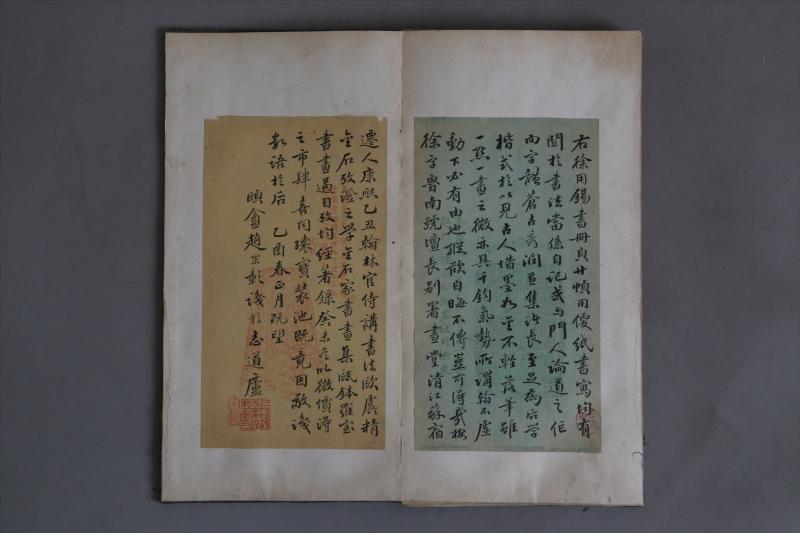 右徐用錫書冊頁廿幀用優紙書寫均有
関於書法當係自記或与門人論道之作
向字譔蒼古秀潤並集众長至足為后学
楷式於以見古人惜墨如金不輕落筆雖
一點一畫之微亦具千鈞氣勢所謂翰不虛
動下必有由也雖欲自晦不傳豈可得哉按
徐字魯南號壇長别署畫堂清江蘇宿
遷人康熙乙丑翰林官侍講書法歐虞精
金石攷證之学金石家書畫集甌鉢羅室
書畫過目攷均經著錄癸未冬以微價得
之市肆喜同瓌寶裝池既竟因敬識
數語於后 乙酉春正月既望
頤盦趙 彰識於志道廬